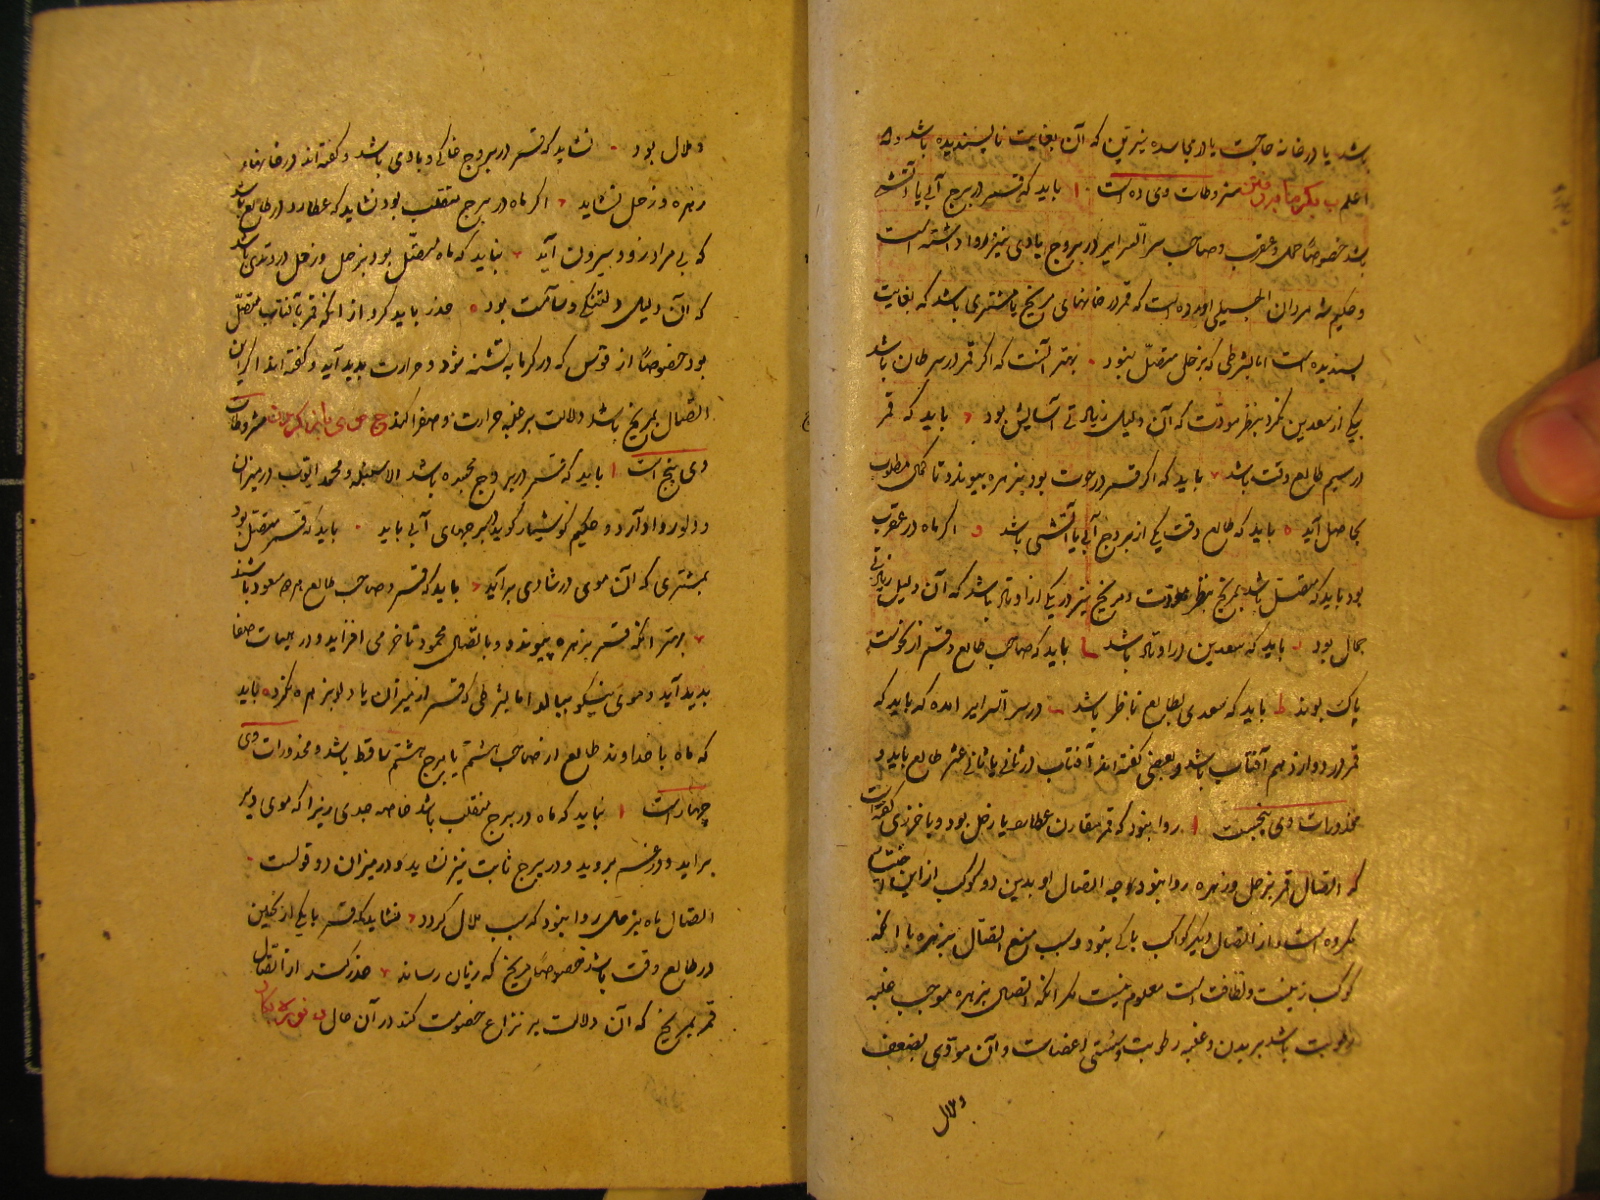 باشد یا در خانه حاجت یا در مجاسده نیرین که آن بغایت ناپسندیده باشد والله
اعلم ب بگرمابه رفتن مشروطات وی ده است ا باید که قمر در برج آبی یا آتشی
باشد خصوصا حمل و عقرب و صاحب سر السرایر در بروج بادی نیز روا داشته است
و حکیم شه مردان الجیلی آورده است که قمر در خانهای مریخ یا مشتری باشد که بغایت
پسندیده است اما بشرطی که بزحل متصل نبود بهتر آنست که اگر قمر در سرطان باشد
بیکی از سعدین نگرد بنظر مودت که آن دلیل زیادتی آسایش بود باید که قمر
در سیم طالع وقت باشد باید که اگر قمر در حوت بود بزهره پیوندد تا کمال مطلوب
بحاصل آید ه باید که طالع وقت یکی از بروج آبی یا آتشی باشد و اگر ماه در عقرب
بود باید که متصل باشد بمریخ بنظر مودت و مریخ نیز در یکی از اوتاد باشد که آن دلیل زیادتی
جمال بود باید که سعدین در اوتاد باشد باید که صاحب طالع و قمر از نحوست
پاک بوند ط باید که سعدی بطالع ناظر باشد در سر السرایر آمده که باید که
قمر در دوازدهم آفتاب باشد و بعضی گفته اند آفتاب در ثانی یا ثانی عشر طالع باید و
محذورات وی پنجست ا روا نبود که قمر مقارن عطارد یا زحل بود و یا خرزی گفته است
که اتصال قمر بزحل و زهره روا نبود و وجه اتصال او بدین دو کوکب از این اختیار
مکروه است و از اتصال دیگر کواکب باکی نبود و سبب منع اتصال بزهره با آنکه
کوکب زینت و لطافت است معلوم نیست مگر آنکه اتصال بزهره موجب غلبه
رطوبت باشد بر بدن و غلبه رطوبت و سستی اعضاست و آن مودی بضعف
و ملال
و ملال بود نشاید که قمر در بروج خاکی و بادی باشد و گفته اند در خانهاء
زهره و زحل نشاید اگر ماه در برج منقلب بود نشاید که عطارد در طالع باشد
که بی مراد زود بیرون آید نباید که ماه متصل بود بزحل و زحل در وتدی باشد
که آن دلیل دلتنگی و سآمت بود ه حذر باید کرد از آنکه قمر بآفتاب متصل
بود خصوصا از قوس که در گرمابه تشنه شود و حرارت پدید آید و گفته اند اگر این
اتصال بمریخ باشد دلالت بر غلبه حرارت و صفرا کند ج موی مشروطات
وی پنج است ا باید که قمر در بروج مجسده باشد الا سنبله و محمد ایوب در میزان
و دلو روا دارد و حکیم کوشیار گوید در برجهای آبی باید باید که قمر متصل بود
بمشتری که آن موی در شادی برآید باید که قمر و صاحب طالع هر دو مسعود باشند
بهتر آنکه قمر بزهره پیوندد و باتصال محمود تا خرمی افزاید و در هیات صفا
پدید آید و موی نیکو ببالد اما بشرطی که قمر از میزان یا دلو بزهره نگرد ه باید
که ماه با خداوند طالع از صاحب هشتم یا برج هشتم ساقط باشد و محذورات وی
چهار است ا نباید که ماه در برج منقلب باشد خاصه جدی زیرا که موی دیر
برآید و در غم بروید و در برج ثابت نیز نشاید و در میزان دو قولست
اتصال ماه بزحل روا نبود که سبب ملال گردد نشاید که قمر با یکی از نحسین
در طالع وقت باشد خصوصا مریخ که زیان رساند حذر کنند از اتصال
قمر بمریخ که آن دلالت بر نزاع خصومت کند در آن حال